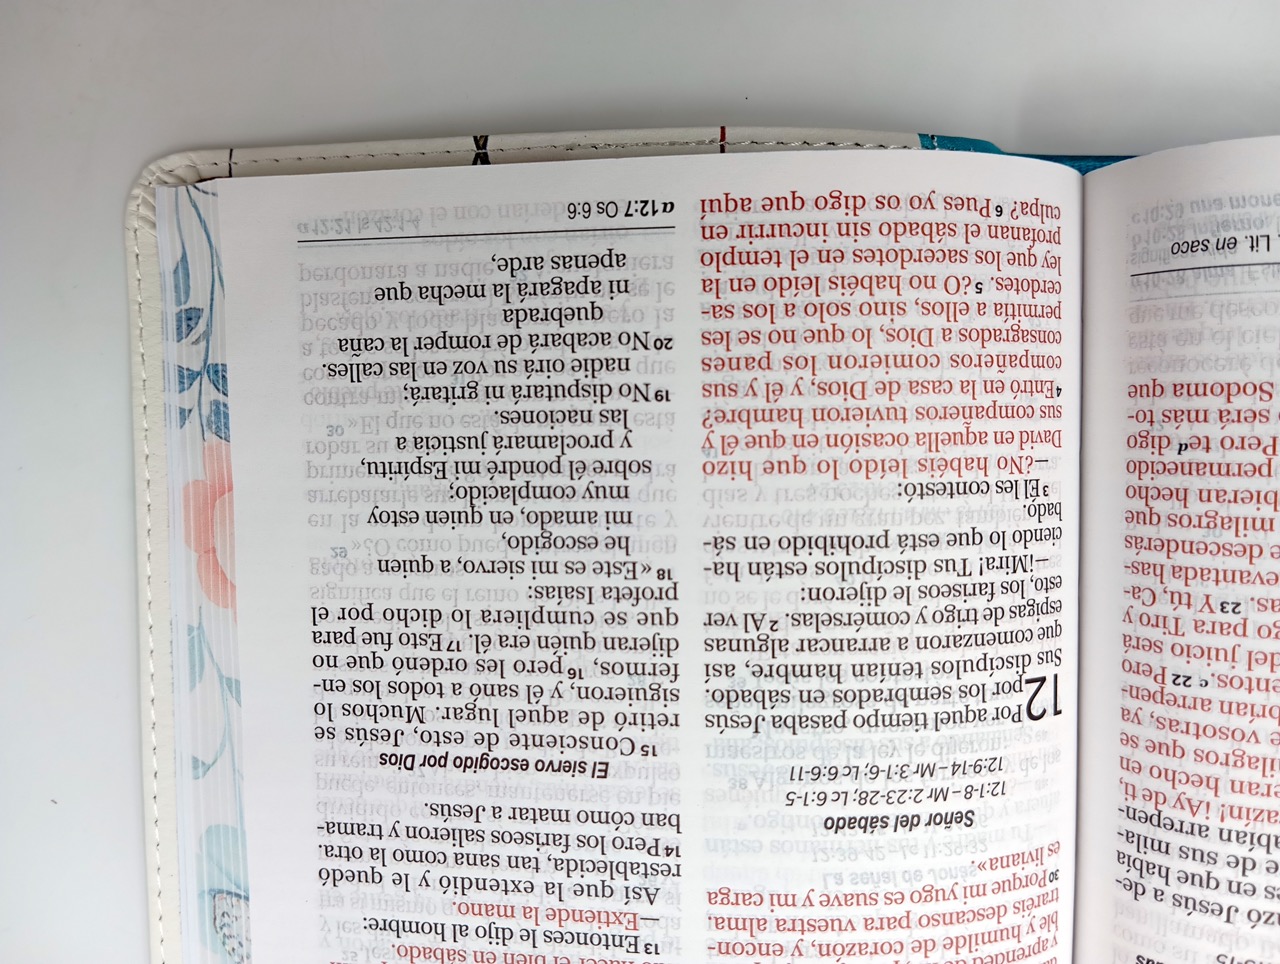 zó Jesús a de-
es en que había
e de sus mila-
abían arrepen-
azín! ¡Ay de ti,
eran hecho en
ilagros que se
e vosotras, ya
brían arrepen-
entos.c 22 Pero
del juicio será
go para Tiro y
as. 23 Y tú, Ca-
evantada has-
e descenderás
milagros que
bieran hecho
permanecido
Pero te d digo
será más to-
Sodoma que
Lit. en saco
ble y humilde de corazón, y encon-
traréis descanso para vuestra alma,
30 Porque mi yugo es suave y mi carga
es liviana».
Señor del sábado
12:1-8 – Mr 2:23-28; Lc 6:1-5
12:9-14 – Mr 3:1-6; Lc 6:6-11
12 Por aquel tiempo pasaba Jesús
por los sembrados en sábado.
Sus discípulos tenían hambre, así
que comenzaron a arrancar algunas
espigas de trigo y comérselas. 2 Al ver
esto, los fariseos le dijeron:
—¡Mira! Tus discípulos están ha-
ciendo lo que está prohibido en sá-
bado.
3 Él les contestó:
—¿No habéis leído lo que hizo
David en aquella ocasión en que él y
sus compañeros tuvieron hambre?
4 Entró en la casa de Dios, y él y sus
compañeros comieron los panes
consagrados a Dios, lo que no se les
permitía a ellos, sino solo a los sa-
cerdotes. 5 ¿O no habéis leído en la
ley que los sacerdotes en el templo
profanan el sábado sin incurrir en
culpa? 6 Pues yo os digo que aquí
hacer el bien en sábado.
13 Entonces le dijo al hombre:
—Extiende la mano.
Así que la extendió y le quedó
restablecida, tan sana como la otra.
14 Pero los fariseos salieron y trama-
ban cómo matar a Jesús.
El siervo escogido por Dios
15 Consciente de esto, Jesús se
retiró de aquel lugar. Muchos lo
siguieron, y él sanó a todos los en-
fermos, 16 pero les ordenó que no
dijeran quién era él. 17 Esto fue para
que se cumpliera lo dicho por el
profeta Isaías:
18 «Este es mi siervo, a quien
he escogido,
mi amado, en quien estoy
muy complacido;
sobre él pondré mi Espíritu,
y proclamará justicia a
las naciones.
19 No disputará ni gritará;
nadie oirá su voz en las calles.
20 No acabará de romper la caña
quebrada
ni apagará la mecha que
apenas arde,
a 12:7 Os 6:6